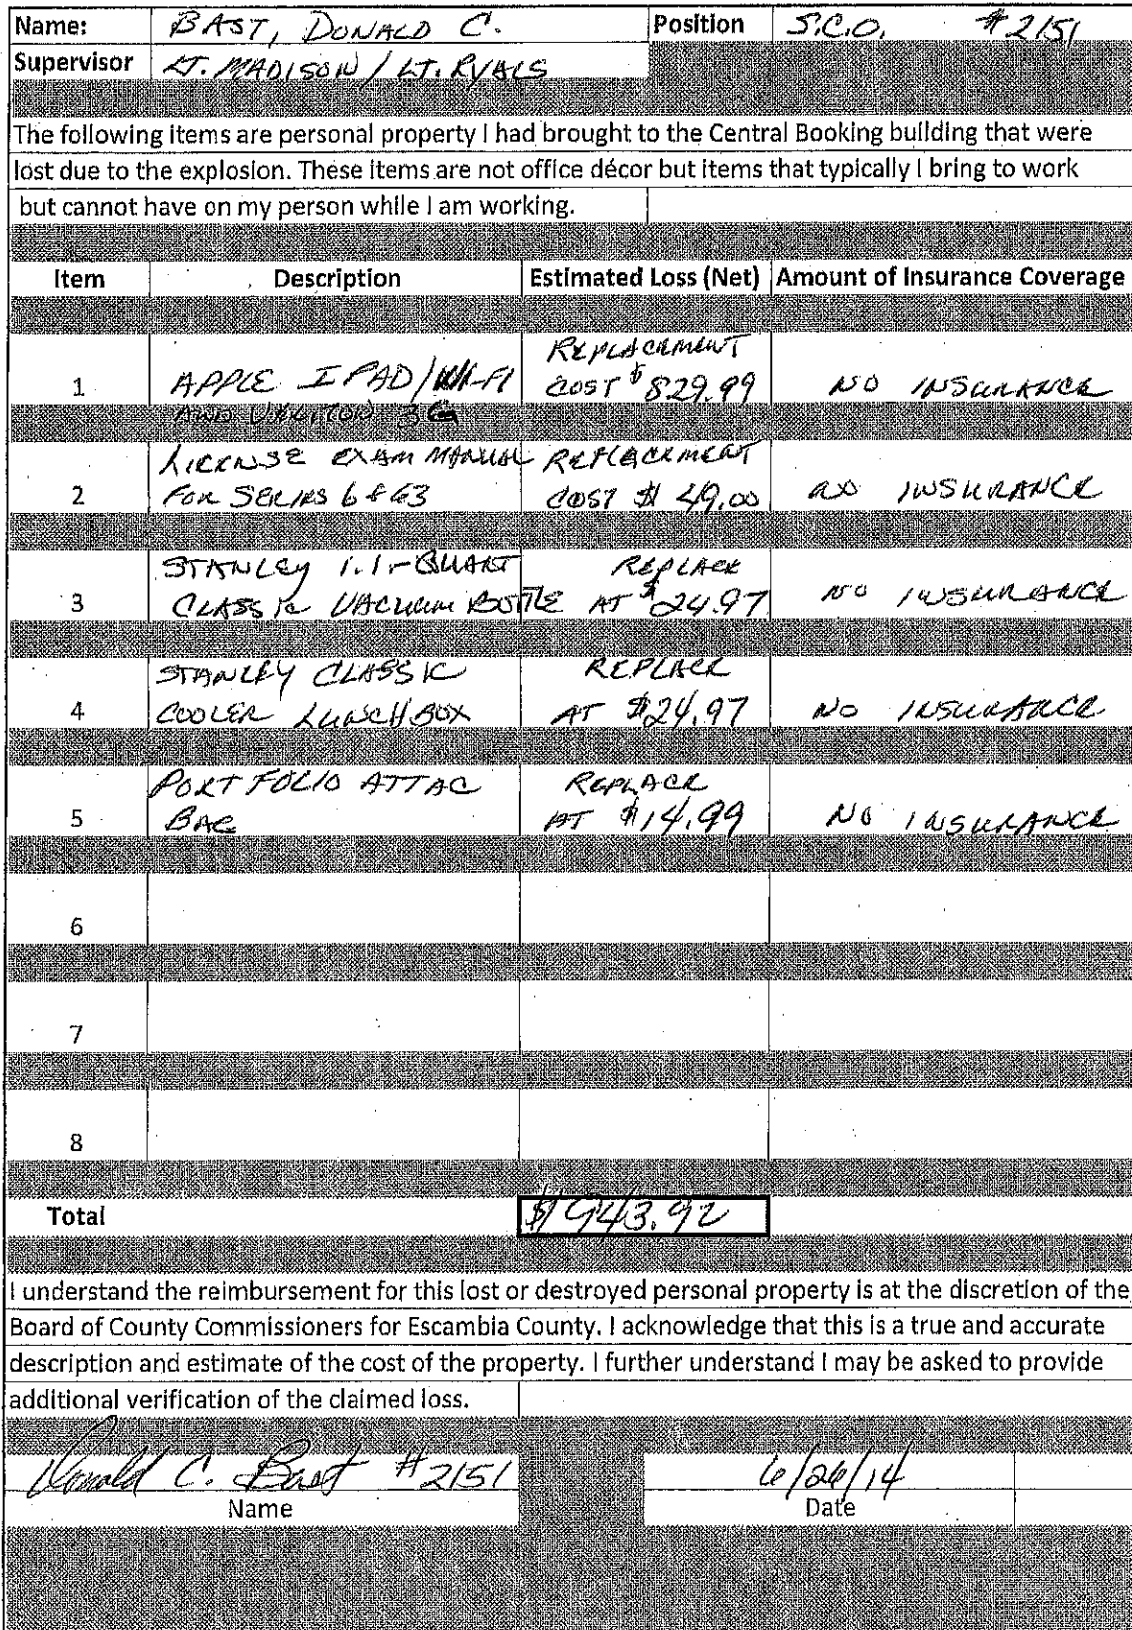 Name: BAST, DONALD C. Position S.C.O. #2151
Supervisor LT. MADISON / LT. RYALS
The following items are personal property I had brought to the Central Booking building that were
lost due to the explosion. These items are not office décor but items that typically I bring to work
but cannot have on my person while I am working.
Item Description Estimated Loss (Net) Amount of Insurance Coverage
REPLACEMENT
1 APPLE IPAD/WI-FI COST $829.99 NO INSURANCE
AND 3G
LICENSE EXAM MANUAL REPLACEMENT
2 FOR SERIES 6 & 63 COST $ 49.00 NO INSURANCE
STANLEY 1.1-QUART REPLACE
3 CLASSIC VACUUM BOTTLE AT $24.97 NO INSURANCE
STANLEY CLASSIC REPLACE
4 COOLER LUNCH BOX AT $24.97 NO INSURANCE
PORTFOLIO ATTAC REPLACE
5 BAG AT $14.99 NO INSURANCE
6
7
8
Total $943.92
I understand the reimbursement for this lost or destroyed personal property is at the discretion of the
Board of County Commissioners for Escambia County. I acknowledge that this is a true and accurate
description and estimate of the cost of the property. I further understand I may be asked to provide
additional verification of the claimed loss.
Donald C. Bast #2151 6/26/14
Name Date